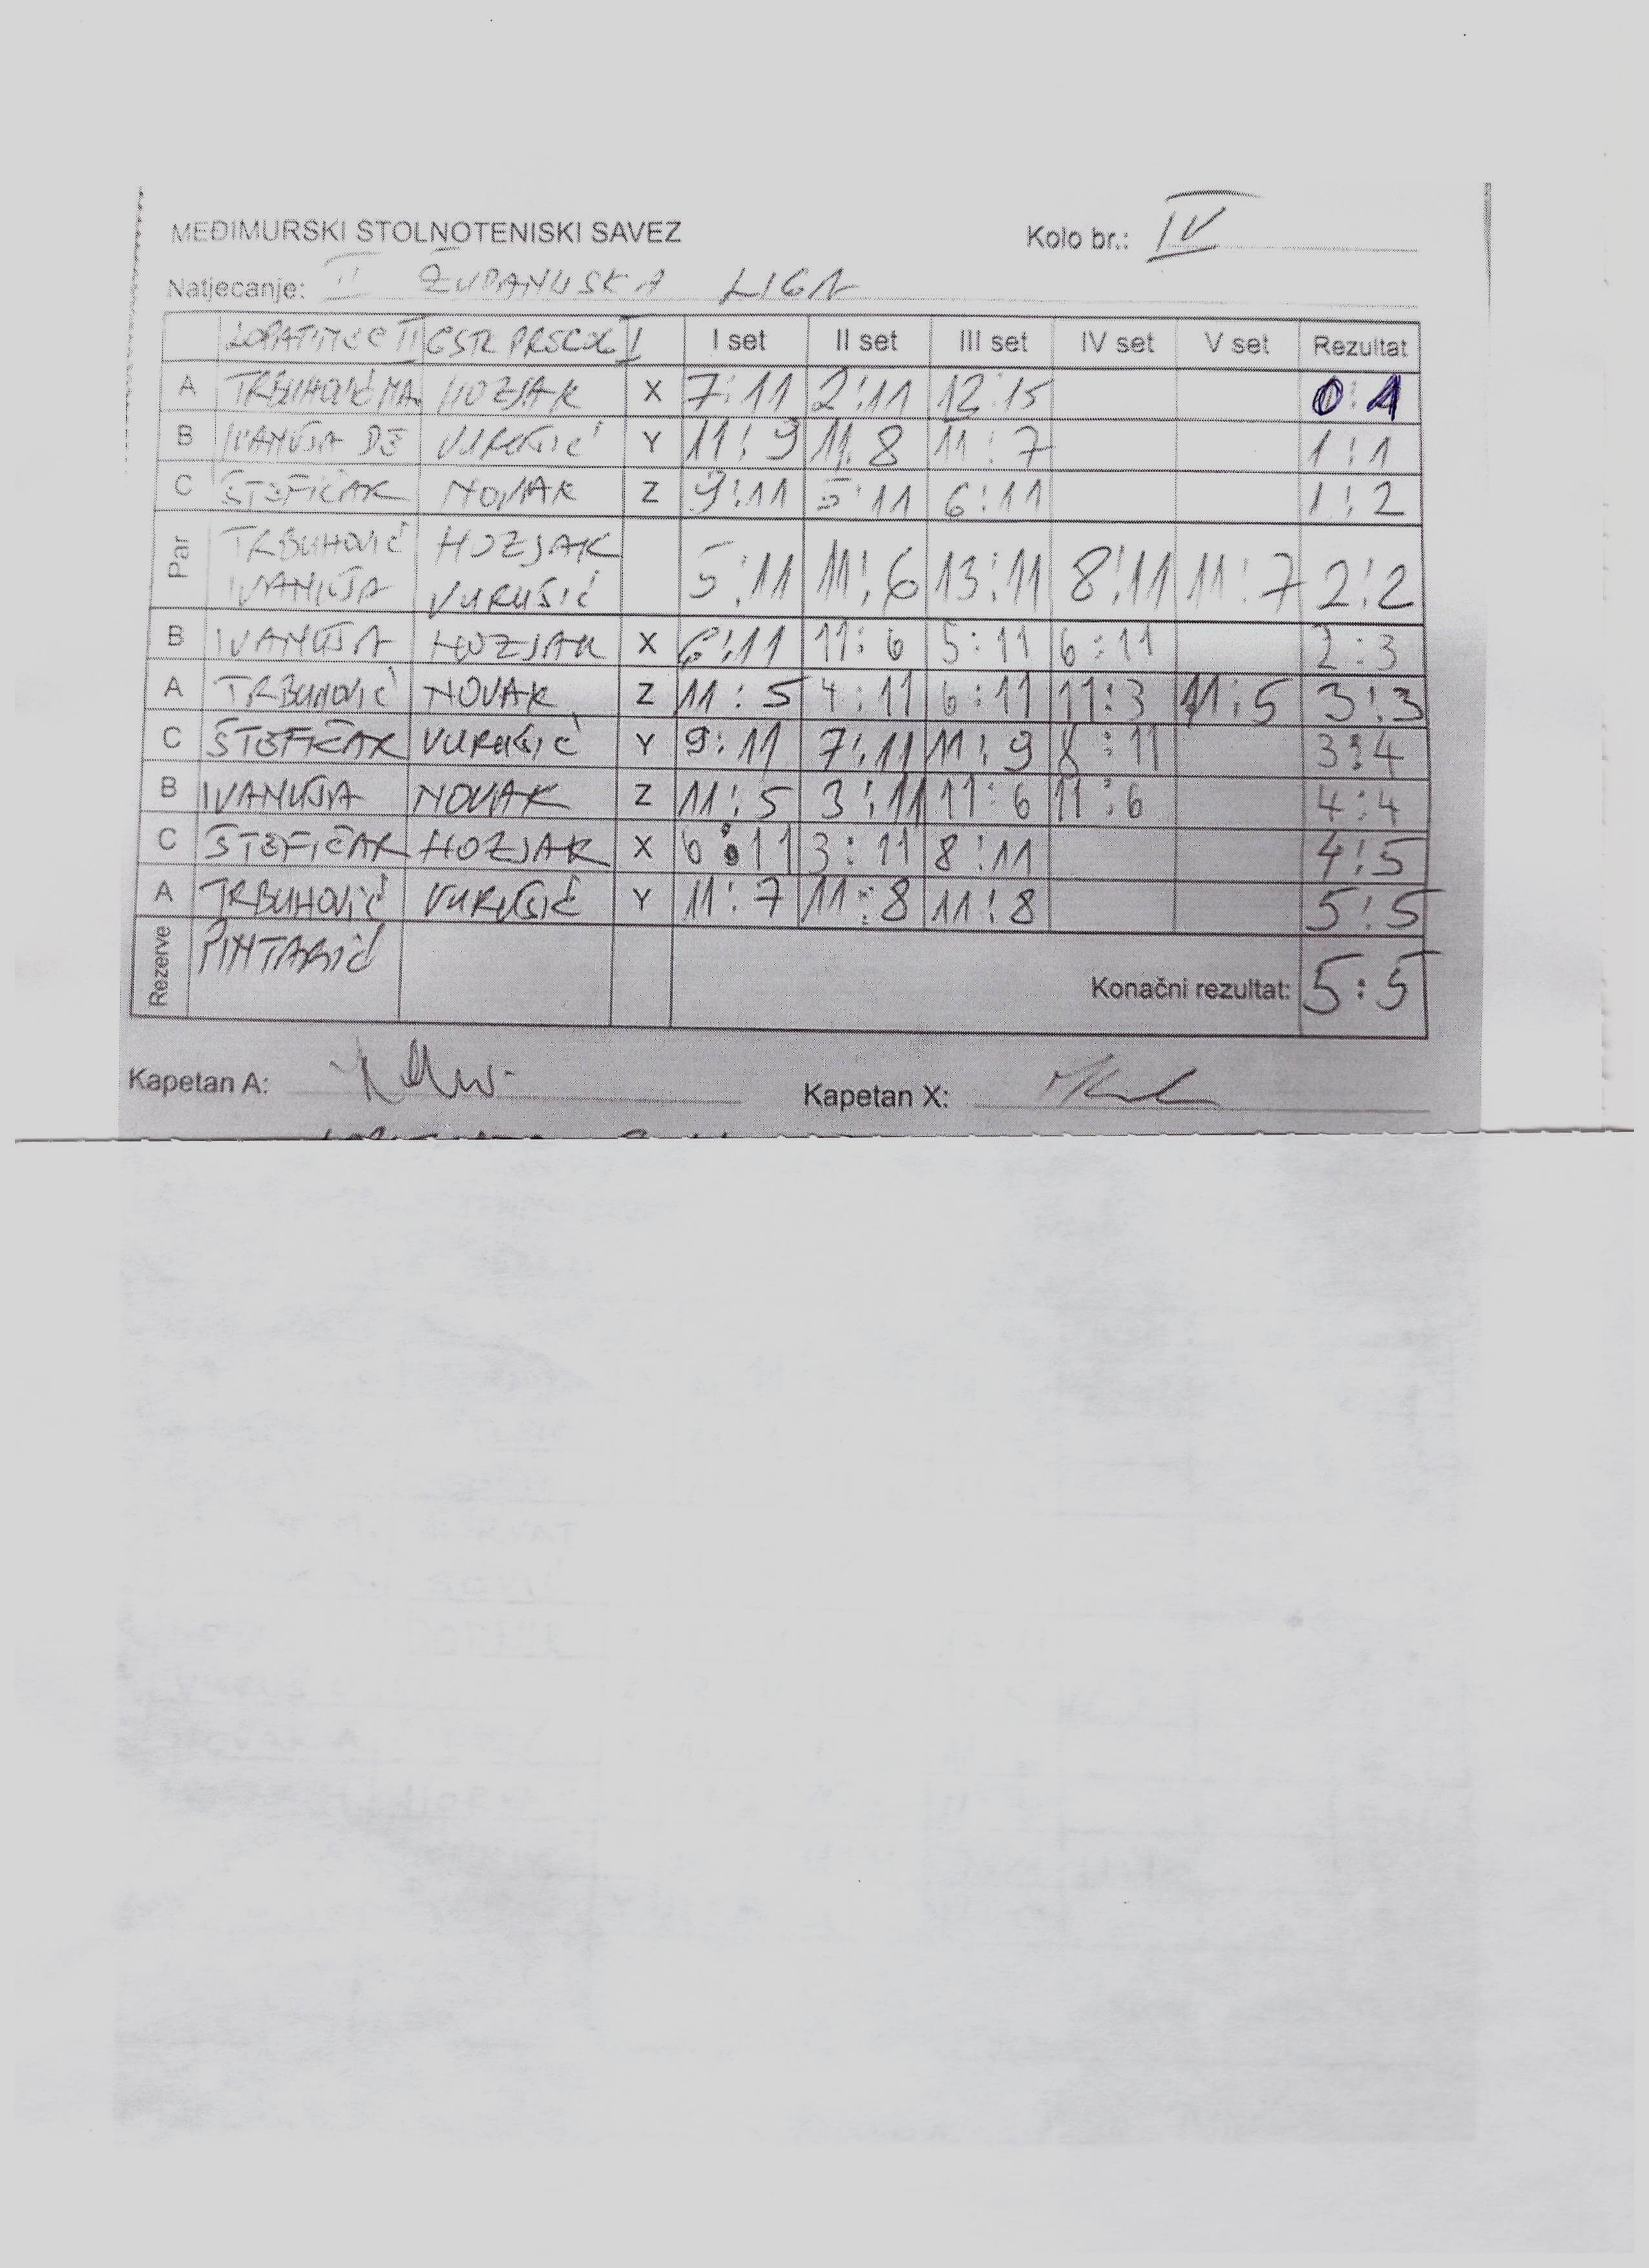 MEĐIMURSKI STOLNOTENISKI SAVEZ Kolo br.: IV
Natjecanje: II ŽUPANIJSKA LIGA
LOPATINEC II GSTK PRELOG I I set II set III set IV set V set Rezultat
A TRBUHOVIĆ MA. HOZJAK X 7:11 2:11 12:15 0:1
B IVANUŠA DE VURUŠIĆ Y 11:9 11:8 11:7 1:1
C ŠTEFIČAR NOVAK Z 9:11 5:11 6:11 1:2
Par TRBUHOVIĆ HOZJAK
IVANUŠA VURUŠIĆ 5:11 11:6 13:11 8:11 11:7 2:2
B IVANUŠA HOZJAK X 6:11 11:6 5:11 6:11 2:3
A TRBUHOVIĆ NOVAK Z 11:5 4:11 6:11 11:3 11:5 3:3
C ŠTEFIČAR VURUŠIĆ Y 9:11 7:11 11:9 8:11 3:4
B IVANUŠA NOVAK Z 11:5 3:11 11:6 11:6 4:4
C ŠTEFIČAR HOZJAK X 6:11 3:11 8:11 4:5
A TRBUHOVIĆ VURUŠIĆ Y 11:7 11:8 11:8 5:5
Rezerve PINTARIĆ Konačni rezultat: 5:5
Kapetan A: Kapetan X: